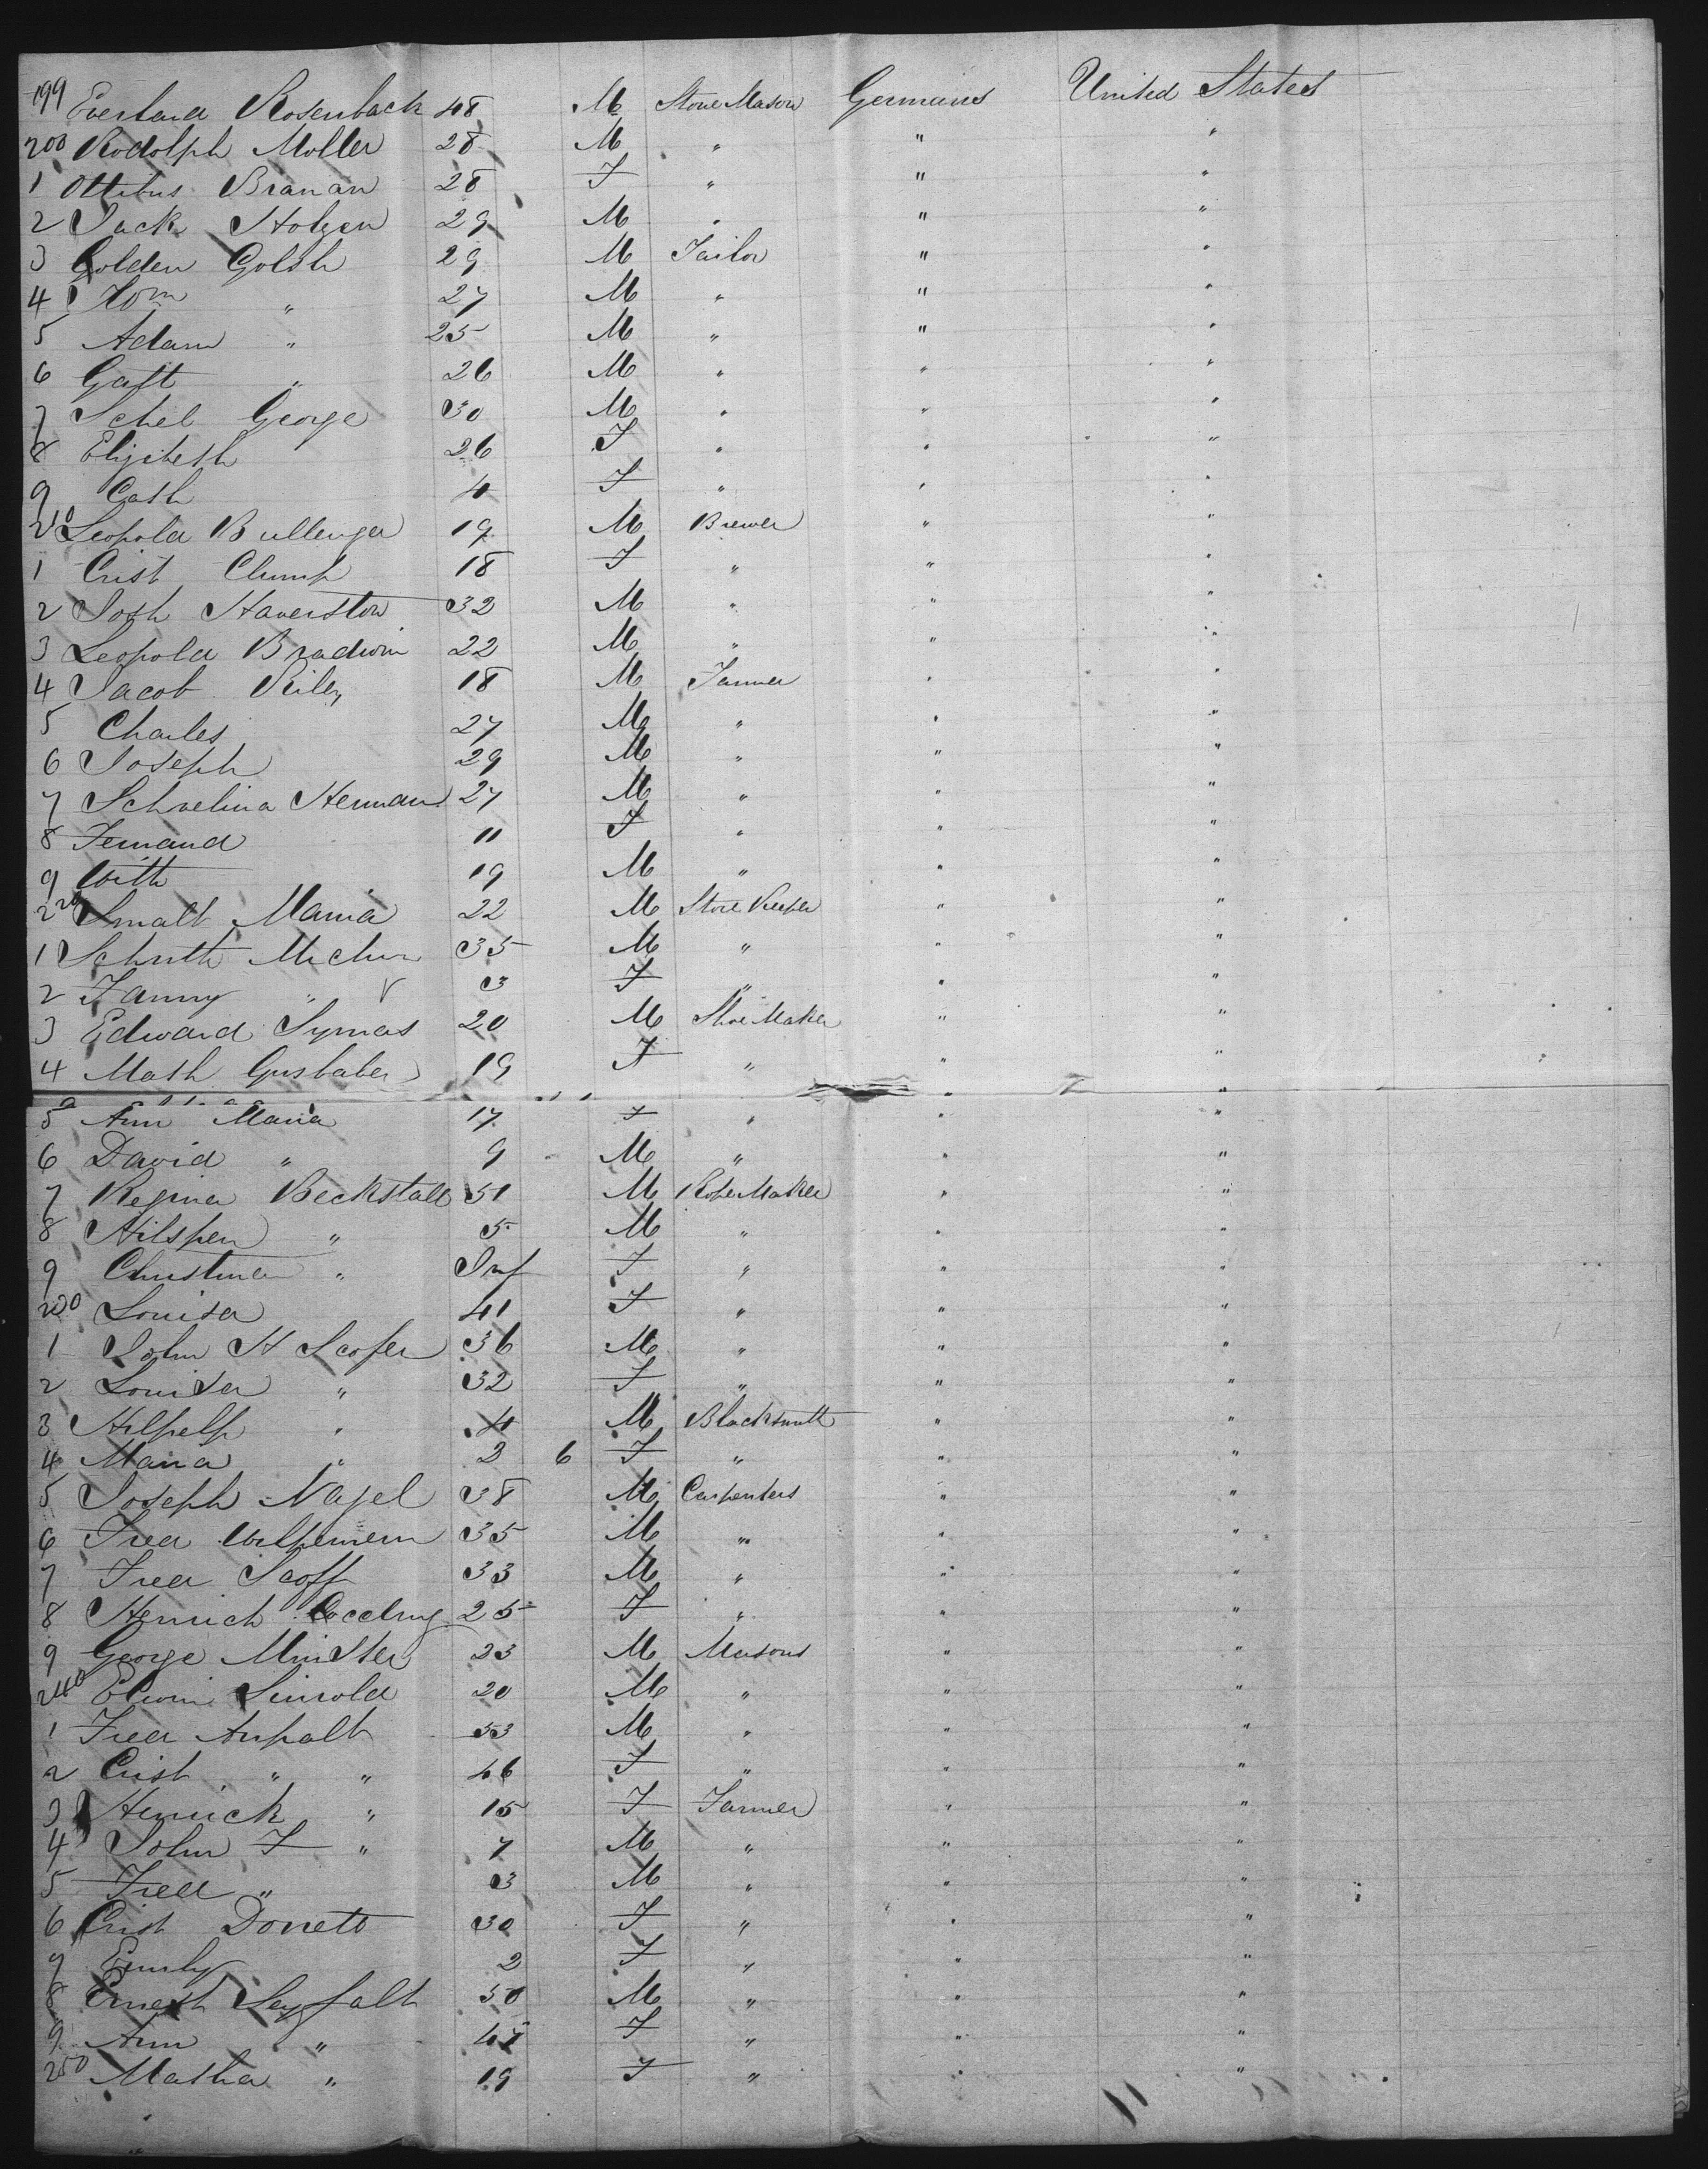 199 Everhard Rosenback 48 M Stone Mason Germans United States
200 Rodolph Moller 28 M " " "
1 Ottibus Branan 28 F " " "
2 Jack Holzen 29 M " " "
3 Golden Golsh 29 M Tailor " "
4 Tom " 27 M " " "
5 Adam " 25 M " " "
6 Gaft " 26 M " " "
7 Schel George 30 M " " "
8 Elizibeth 26 F " " "
9 Cath 4 F " " "
210 Leopold Bullenger 19 M Brewer " "
1 Crist Clump 18 F " " "
2 Josh Haverstow 32 M " " "
3 Leopold Bradwin 22 M " " "
4 Jacob Riley 18 M Farmer " "
5 Charles 27 M " " "
6 Joseph 29 M " " "
7 Schvelina Herman 27 M " " "
8 Fernand 11 F " " "
9 With 19 M " " "
220 Smalt Maria 22 M Store Keeper " "
1 Schuth Michur 35 M " " "
2 Fanny " 3 F " " "
3 Edward Symas 20 M Shoe Maker " "
4 Math Gusbaber 19 F " " "
5 Ann Maria 17 F " " "
6 David " 9 M " " "
7 Regina Beckstall 51 M Rope Maker " "
8 Hilspen " 5 M " " "
9 Christina " Inf F " " "
230 Louisa 41 F " " "
1 John H Scofer 36 M " " "
2 Louisa " 32 F " " "
3 Hilpelp " 4 M Blacksmith " "
4 Maria " 2 6 F " " "
5 Joseph Nagel 38 M Carpenters " "
6 Fred Wilhemem 35 M " " "
7 Fred Scoff 33 M " " "
8 Henrich 25 F " " "
9 George Minster 23 M Masons " "
240 Edwin Sinvold 20 M " " "
1 Fred Anhalt 53 M " " "
2 Crist " " 46 F " " "
3 Henrick " 15 F Farmer " "
4 John F " 7 M " " "
5 Fred " 3 M " " "
6 Crist Dorrett 30 F " " "
7 Emily 2 F " " "
8 Ernest Seyfalt 50 M " " "
9 Ann " 47 F " " "
250 Matha " 19 F " " "